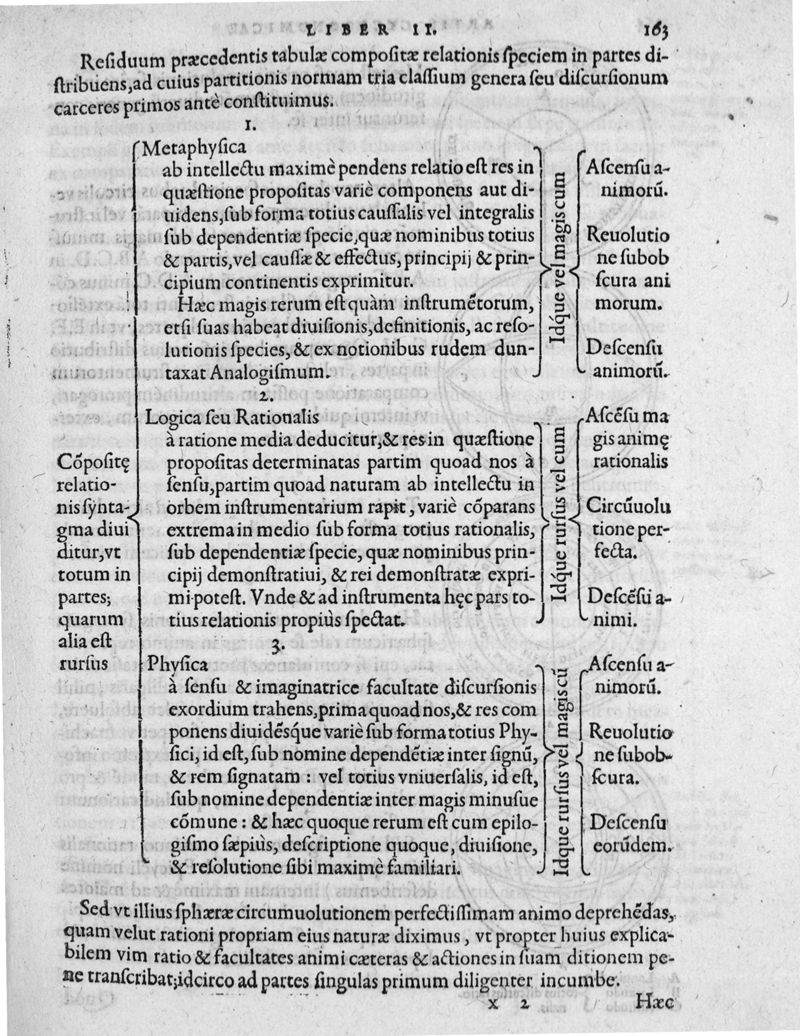 LIBER II. 163
Reſiduum præcedentis tabulæ compoſitæ relationis ſpeciem in partes di-
ſtribuens,ad cuius partitionis normam tria claſſium genera ſeu diſcurſionum
carceres primos antè conſtituimus.
1.
Metaphyſica
ab intellectu maximè pendens relatio eſt res in
quæſtione propoſitas variè componens aut di-
uidens,ſub forma totius cauſſalis vel integralis
ſub dependentiæ ſpecie,quæ nominibus totius
& partis,vel cauſſæ & effectus, principij & prin-
cipium continentis exprimitur.
Hæc magis rerum eſt quàm inſtrumẽtorum,
etſi ſuas habeat diuiſionis,definitionis, ac reſo-
lutionis ſpecies,& ex notionibus rudem dun-
taxat Analogiſmum.
Idq́ue vel magis cum
Aſcenſu a-
nimorũ.
Reuolutio
ne ſubob
ſcura ani
morum.
Deſcenſu
animorũ.
2.
Cõpoſitę
relatio-
nis ſynta-
gma diui
ditur,vt
totum in
partes;
quarum
alia eſt
rurſus
Logica ſeu Rationalis
à ratione media deducitur,& res in quæſtione
propoſitas determinatas partim quoad nos à
ſenſu,partim quoad naturam ab intellectu in
orbem inſtrumentarium rapit, variè cõparans
extrema in medio ſub forma totius rationalis,
ſub dependentiæ ſpecie, quæ nominibus prin-
cipij demonſtratiui, & rei demonſtratæ expri-
mi poteſt. Vnde & ad inſtrumenta hęc pars to-
tius relationis propiùs ſpectat.
Idq́ue rurſus vel cum
Aſcẽſu ma
gis animę
rationalis
Circũuolu
tione per-
fecta.
Deſcẽſu a-
nimi.
3.
Phyſica
à ſenſu & imaginatrice facultate diſcurſionis
exordium trahens,prima quoad nos,& res com
ponens diuidẽsq́ue variè ſub forma totius Phy-
ſici, id eſt, ſub nomine dependẽtiæ inter ſignũ,
& rem ſignatam : vel totius vniuerſalis, id eſt,
ſub nomine dependentiæ inter magis minuſue
cõmune : & hæc quoque rerum eſt cum epilo-
giſmo ſæpiùs, deſcriptione quoque, diuiſione,
& reſolutione ſibi maximè familiari.
Idque rurſus vel magis cũ
Aſcenſu a-
nimorũ.
Reuolutio
ne ſubob-
ſcura.
Deſcenſu
eorũdem.
Sed vt illius ſphæræ circumuolutionem perfectiſſimam animo deprehẽdas,
quam velut rationi propriam eius naturæ diximus, vt propter huius explica-
bilem vim ratio & facultates animi cæteras & actiones in ſuam ditionem pe-
ne tranſcribat;idcirco ad partes ſingulas primum diligenter incumbe.
x 2 Hæc